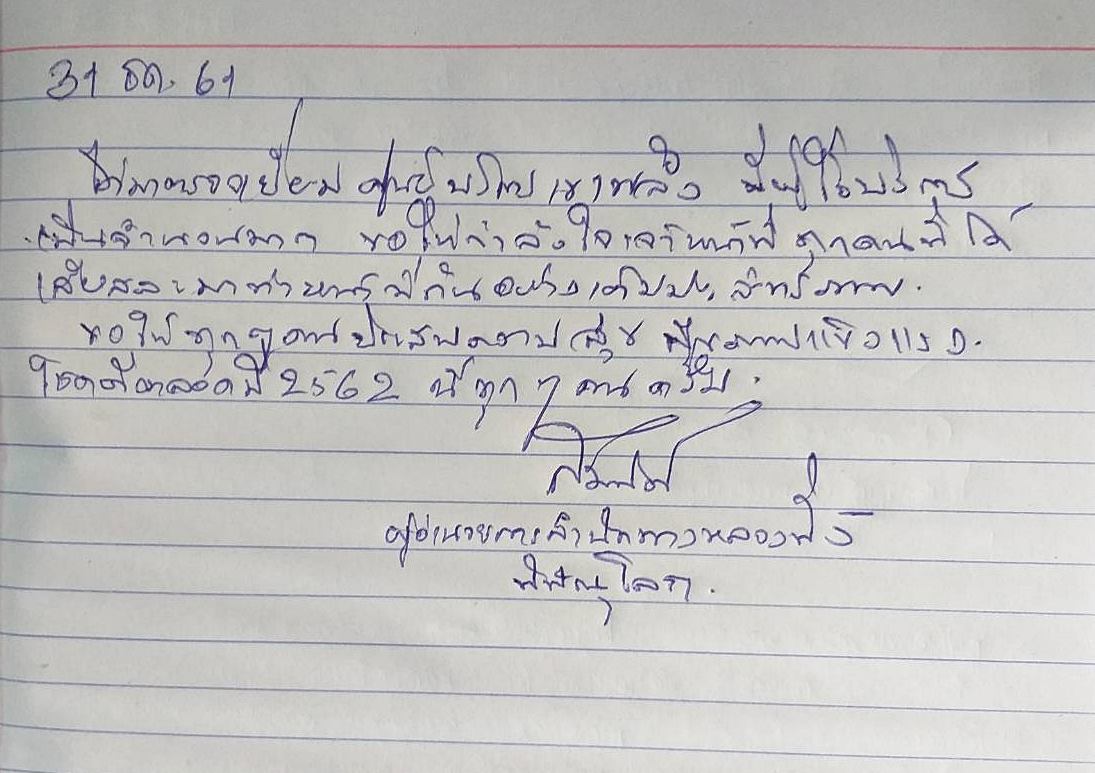 31 ธค. 61
ได้มาตรวจเยี่ยม ศูนย์บริการ มีผู้ใช้บริการ
เป็นจำนวนมาก ขอให้กำลังใจเจ้าหน้าที่ ทุกคนที่ได้
เสียสละมาทำหน้าที่กันอย่างเต็มประสิทธิภาพ.
ขอให้ทุกๆคนประสบความสุข สุขภาพแข็งแรง.
โชคดีตลอดปี 2562 นี้ทุกๆ คนครับ.
ผู้อำนวยการสำนักทางหลวงที่ 5
พิษณุโลก.